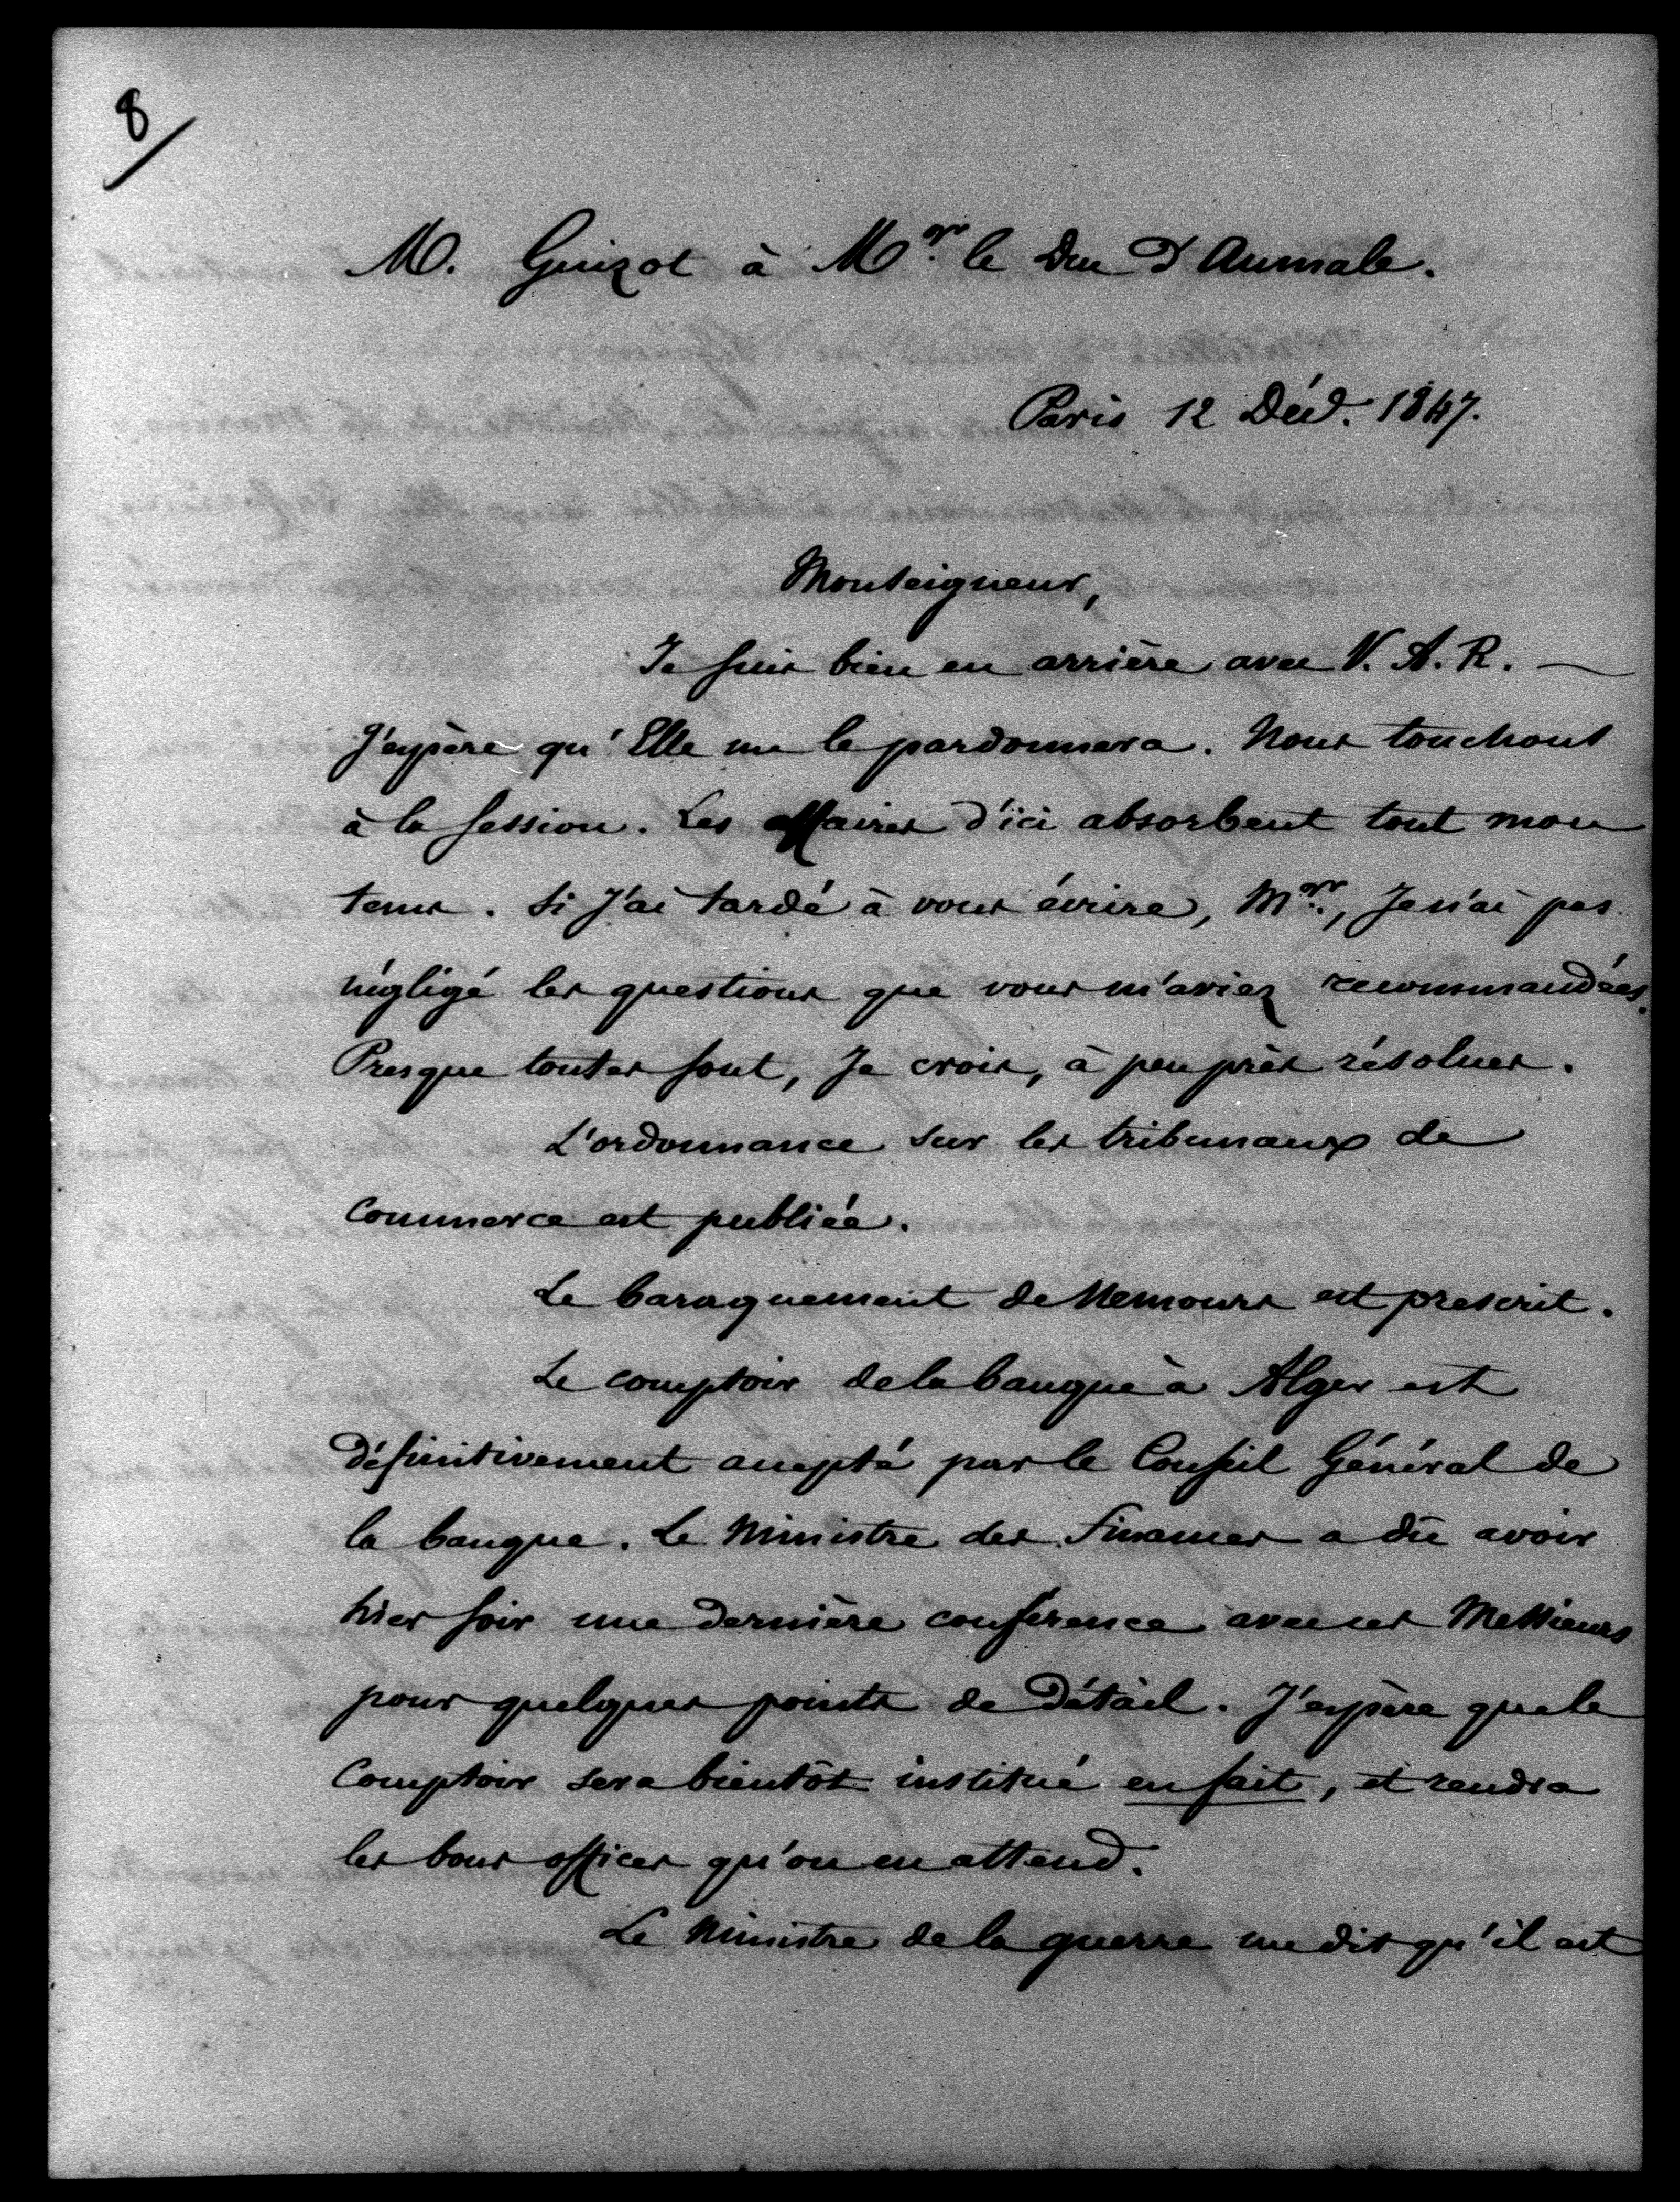 8
M. Guizot à Mgr. le Duc d'Aumale.
Paris 12 Déc. 1847.
Monseigneur,
Je suis bien en arrière avec V. A. R. —
J'espère qu'Elle me le pardonnera. Nous touchons
à la session. Les affaires d'ici absorbent tout mon
tems. Si J'ai tardé à vous écrire, Mgr., Je n'ai pas
négligé les questions que vous m'aviez recommandées.
Presque toutes sont, Je crois, à peu près résolues.
L'ordonnance sur les tribunaux de
Commerce est publiée.
Le baraquement de Nemours est prescrit.
Le comptoir de la banque à Alger est
définitivement accepté par le Conseil Général de
la banque. Le Ministre des Finances a dû avoir
hier soir une dernière conférence avec ces Messieurs
pour quelques points de détail. J'espère que le
Comptoir sera bientôt institué en fait, et rendra
les bons offices qu'on en attend.
Le Ministre de la guerre me dit qu'il est